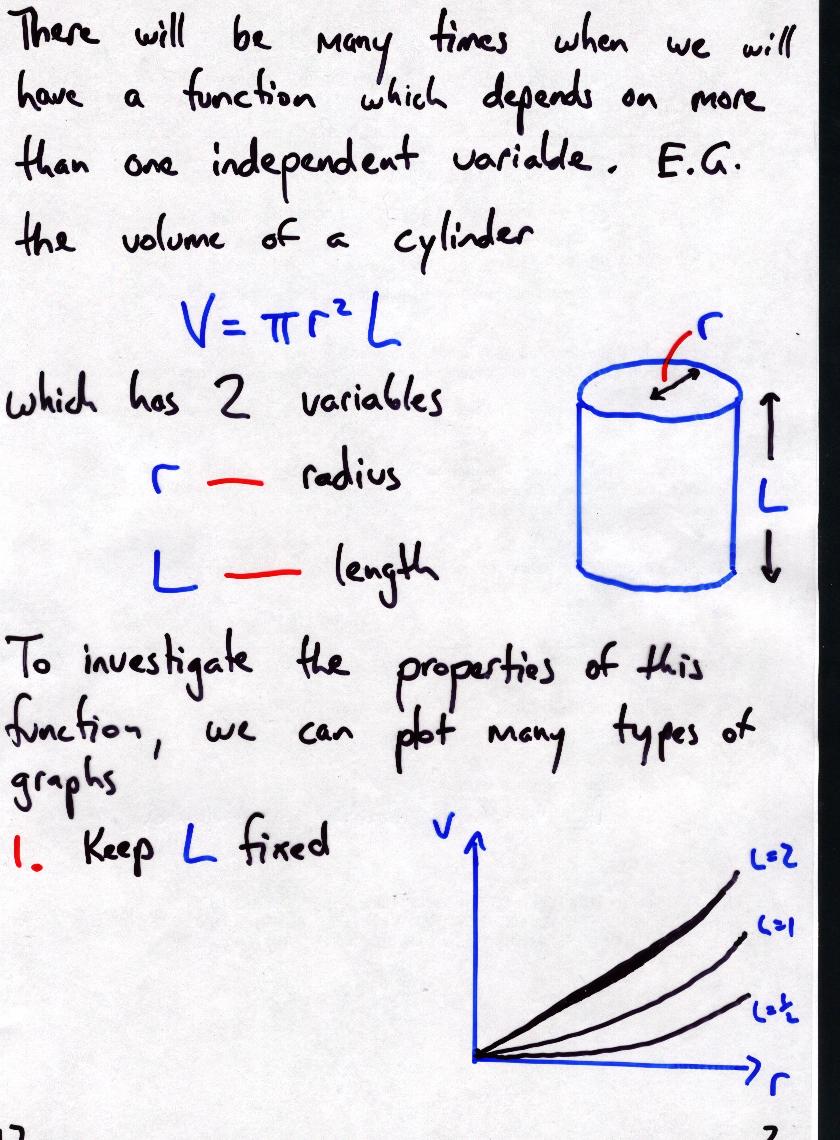 There will be many times when we will
have a function which depends on more
than one independent variable. E.G.
the volume of a cylinder
V = πr² L
r
which has 2 variables
r — radius
L
L — length
To investigate the properties of this
function, we can plot many types of
graphs
1. Keep L fixed
V
L=2
L=1
L=½
r